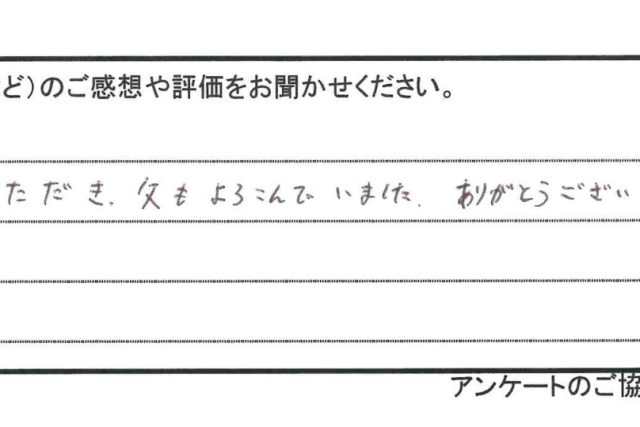 ど)のご感想や評価をお聞かせください。
ただき、父もよろこんでいました。ありがとうござい
アンケートのご協